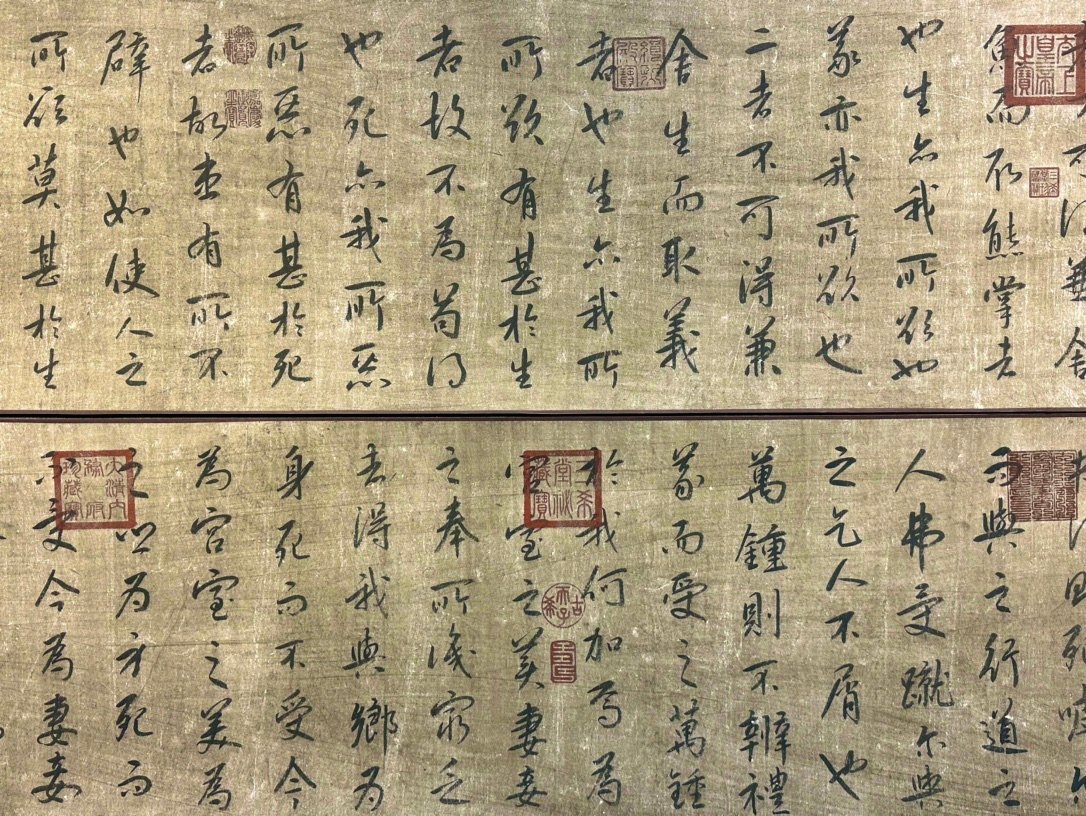 可得兼舍
魚而取熊掌者
也生亦我所欲也
義亦我所欲也
二者不可得兼
舍生而取義
者也生亦我所
所欲有甚於生
者故不為苟得
也死亦我所惡
所惡有甚於死
者故患有所不
辟也如使人之
所欲莫甚於生
得則死嘑尔
而與之行道之
人弗受蹴尔與
之乞人不屑也
萬鍾則不辨禮
義而受之萬鍾
於我何加焉為
宮室之美妻妾
之奉所識窮乏
者得我與鄉為
身死而不受今
為宮室之美為
之鄉為身死而
不受今為妻妾
太上皇帝之寶
古希天子